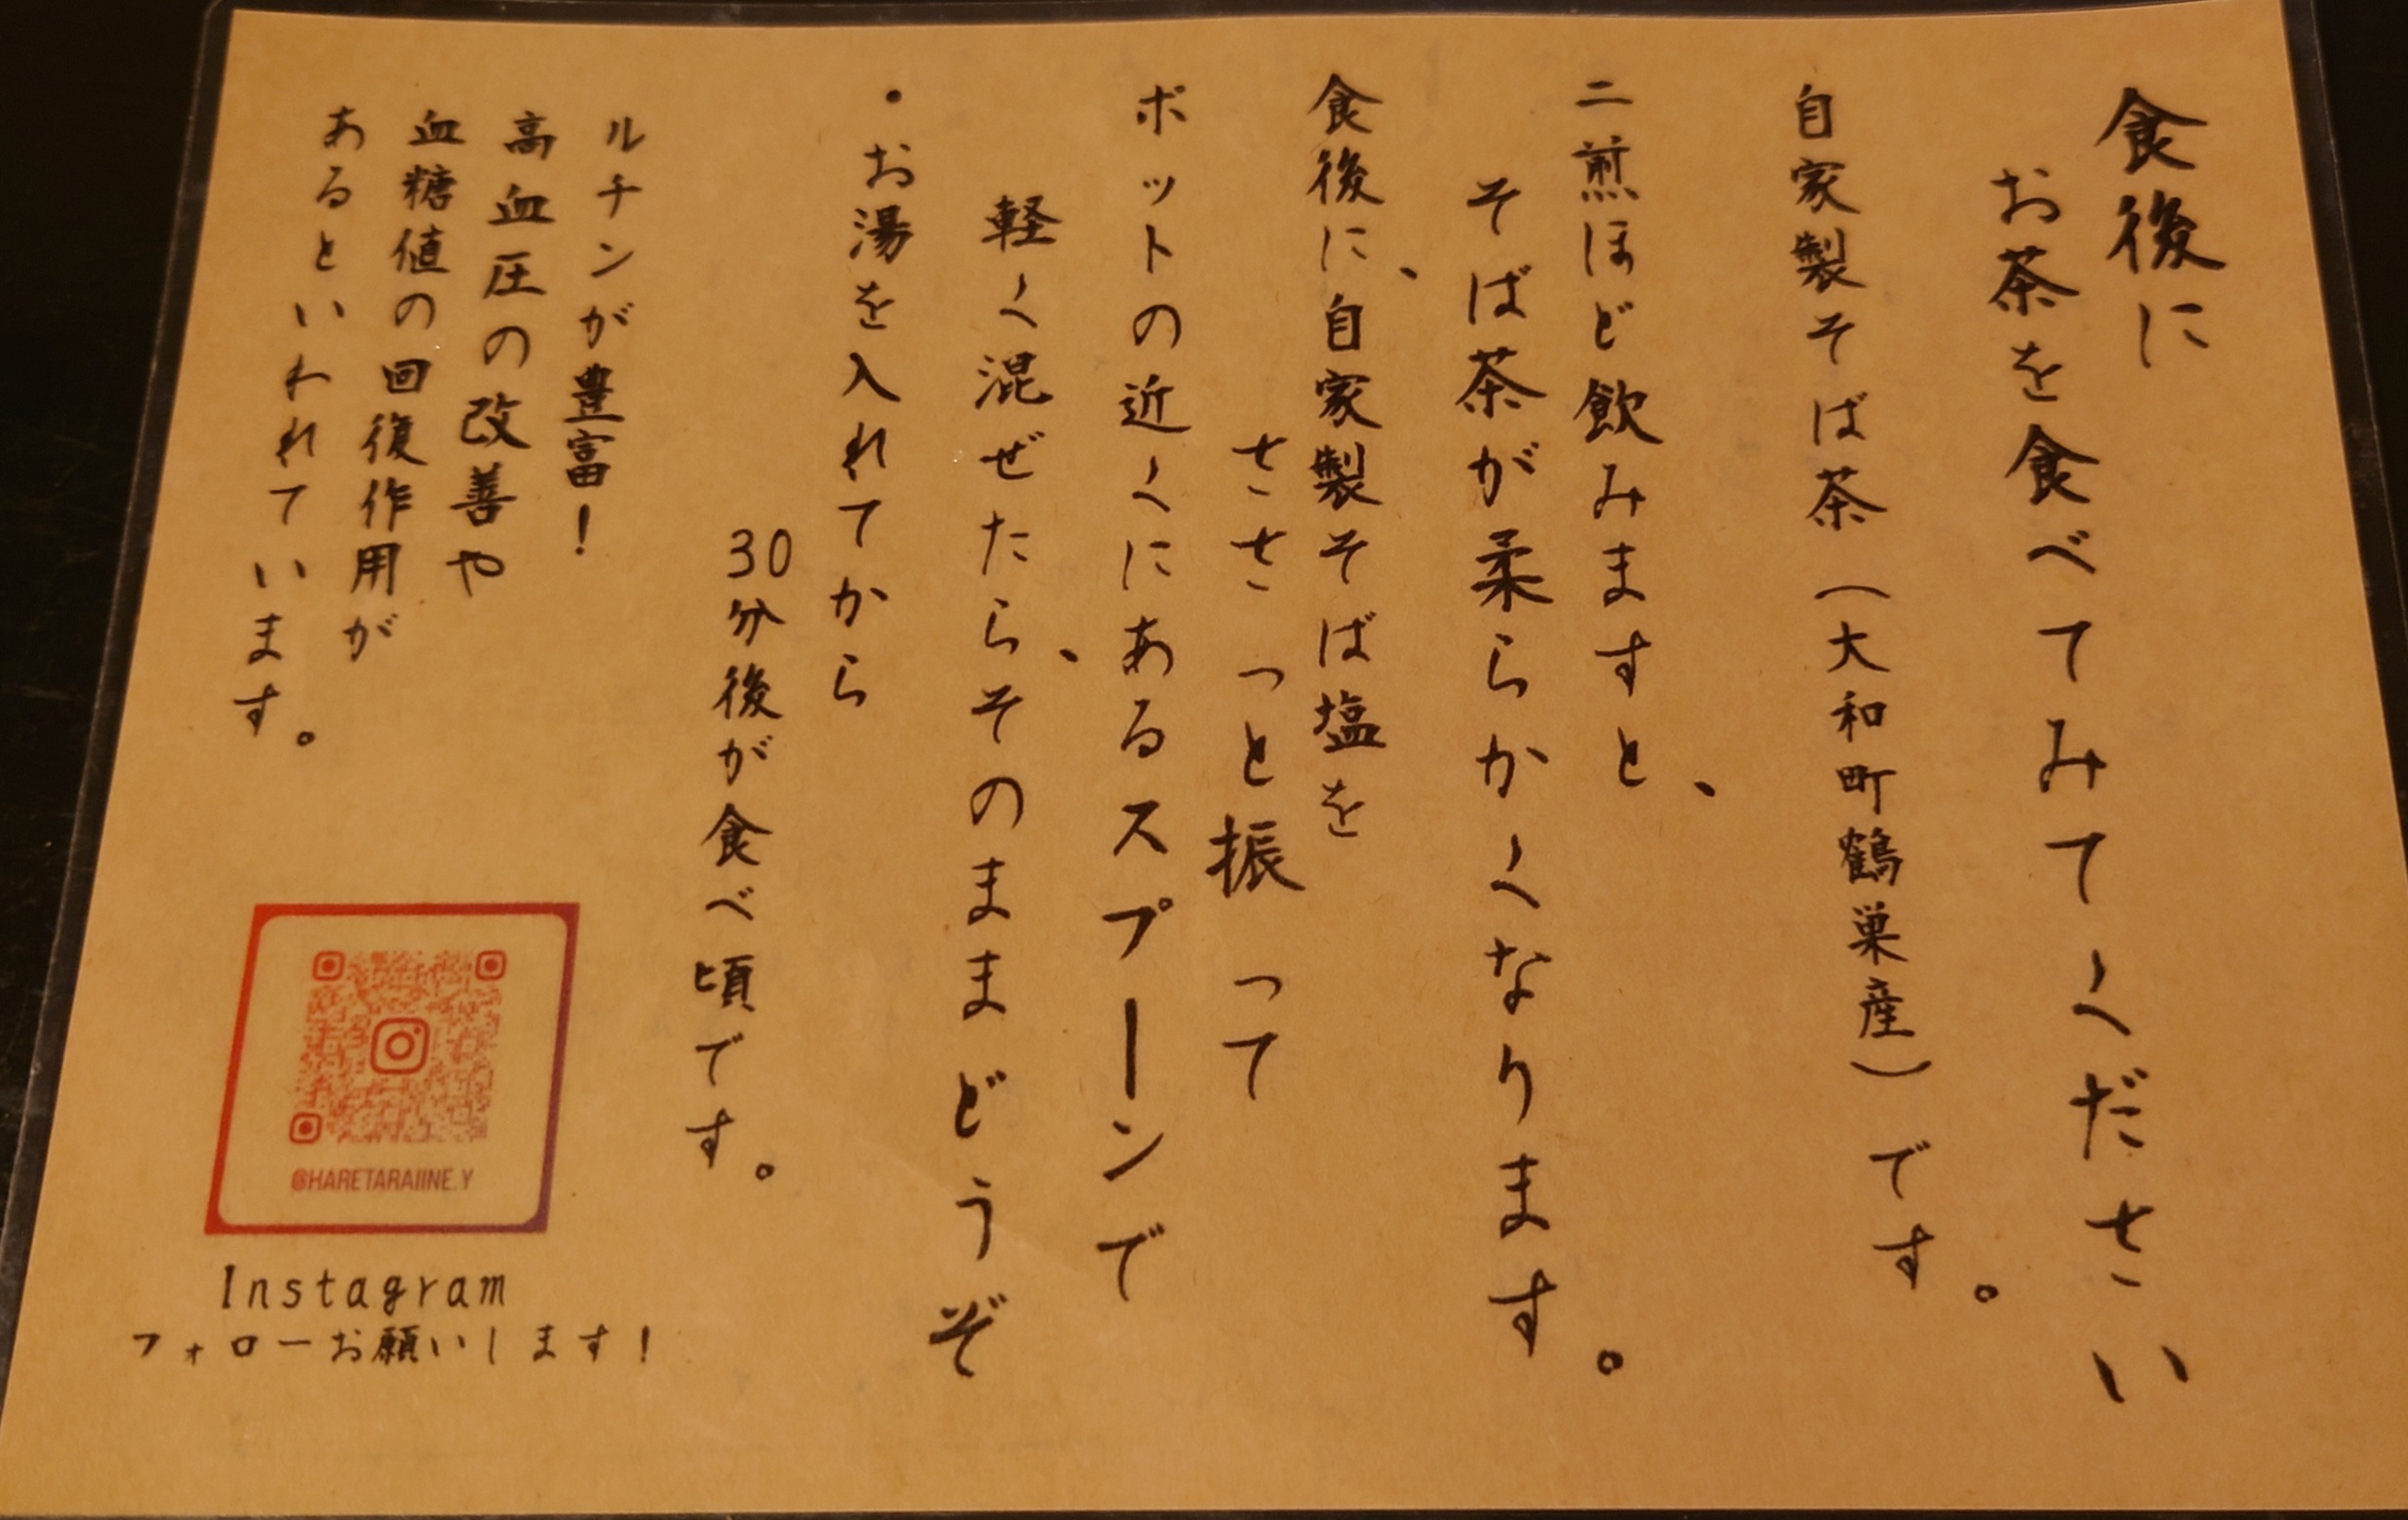 食後に
お茶を食べてみてください
自家製そば茶(大和町鶴巣産)です。
二煎ほど飲みますと、
そば茶が柔らかくなります。
食後に、自家製そば塩を
ささっと振って
ポットの近くにあるスプーンで
軽く混ぜたら、そのままどうぞ
・お湯を入れてから
30分後が食べ頃です。
ルチンが豊富!
高血圧の改善や
血糖値の回復作用が
あるといわれています。
@HARETARAIINE.Y
Instagram
フォローお願いします!